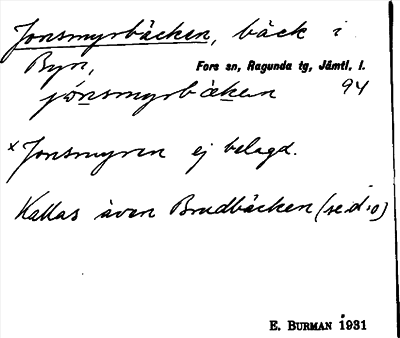 Jonsmyrbäcken, bäck i
Byn, Fors sn, Ragunda tg, Jämtl. l.
jónsmyrbäken 94
x Jonsmyren ej belagd.
Kallas även Brudbäcken (se d:o)
E. BURMAN 1931